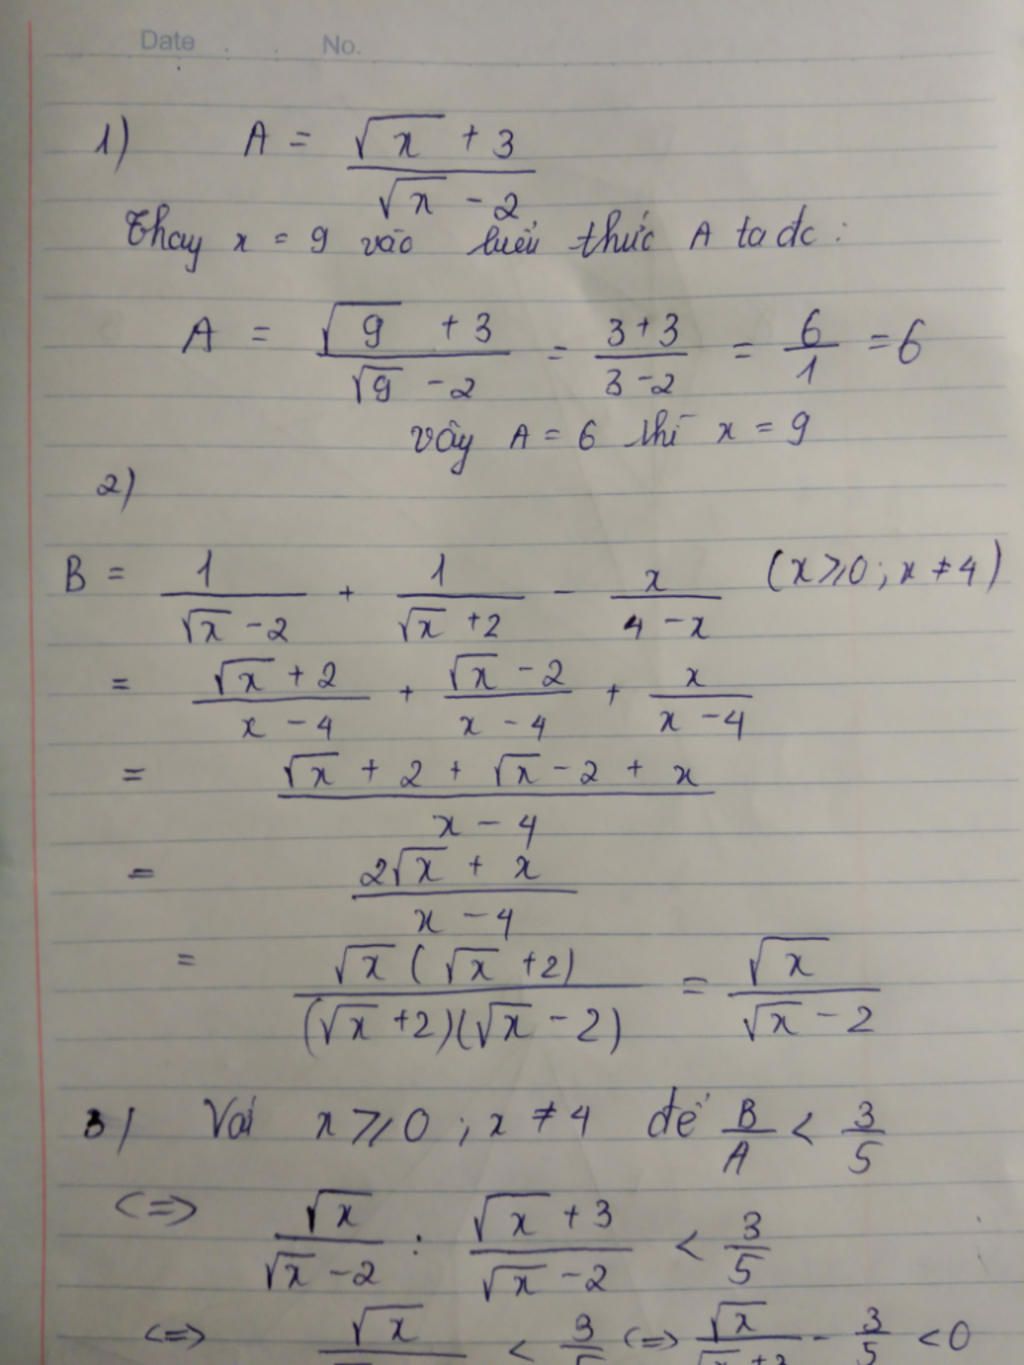 Date . . No.
1) A = (√x + 3)/(√x - 2)
Thay x = 9 vào biểu thức A ta đc :
A = (√9 + 3)/(√9 - 2) = (3+3)/(3-2) = 6/1 = 6
vậy A = 6 thì x = 9
2)
B = 1/(√x - 2) + 1/(√x + 2) - x/(4 - x) (x ⩾ 0 ; x ≠ 4)
= (√x + 2)/(x - 4) + (√x - 2)/(x - 4) + x/(x - 4)
= (√x + 2 + √x - 2 + x)/(x - 4)
= (2√x + x)/(x - 4)
= (√x (√x + 2))/((√x + 2)(√x - 2)) = √x/(√x - 2)
3) Với x ⩾ 0 ; x ≠ 4 để B/A < 3/5
<=> √x/(√x - 2) : (√x + 3)/(√x - 2) < 3/5
<=> √x < 3 <=> √x/(√x + 3) - 3/5 < 0